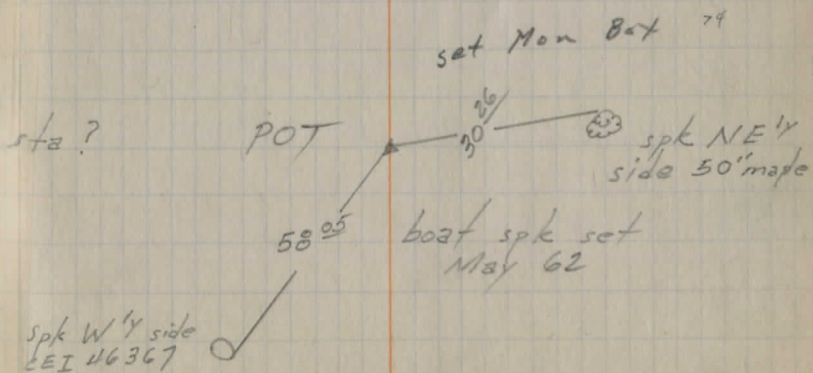 set Mon Box 74
30 26
sta ?
POT
spk NE'y
side 50" maple
58 05
boat spk set
May 62
spk W'y side
CEI 46367